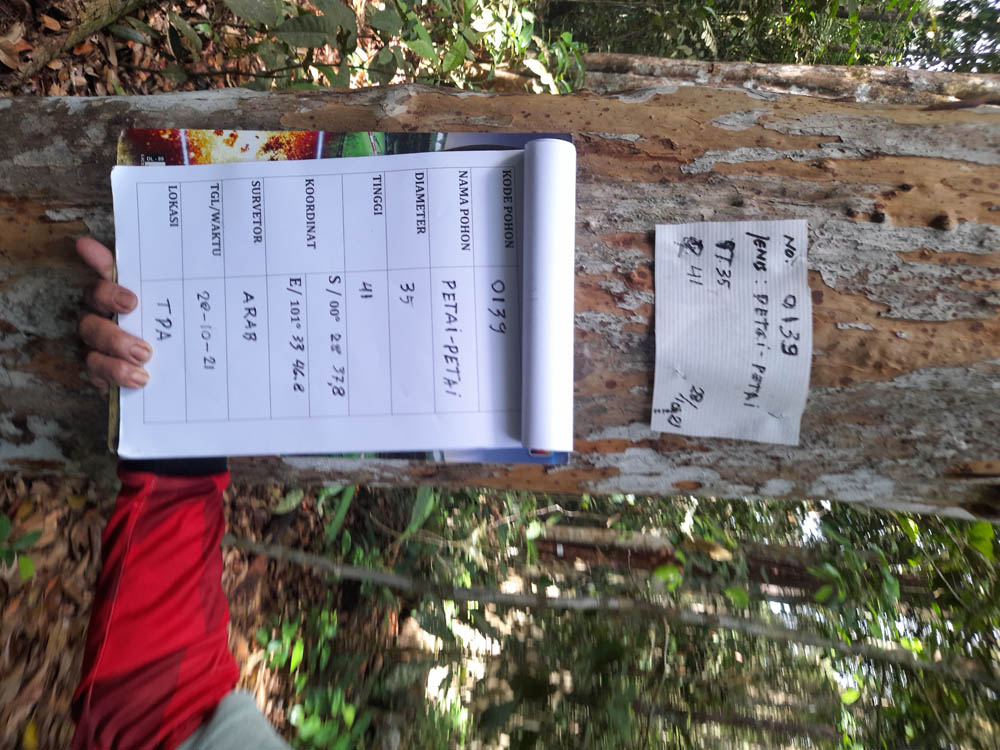 NO: 0139
JENIS : PETAI-PETAI
T 35
41
28/10 21
KODE POHON 0139
NAMA POHON PETAI-PETAI
DIAMETER 35
TINGGI 41
KOORDINAT
S / 00° 28 37,8
E/ 101° 33 46.8
SURVETOR ARAB
TGL/WAKTU 28-10-21
LOKASI TPA